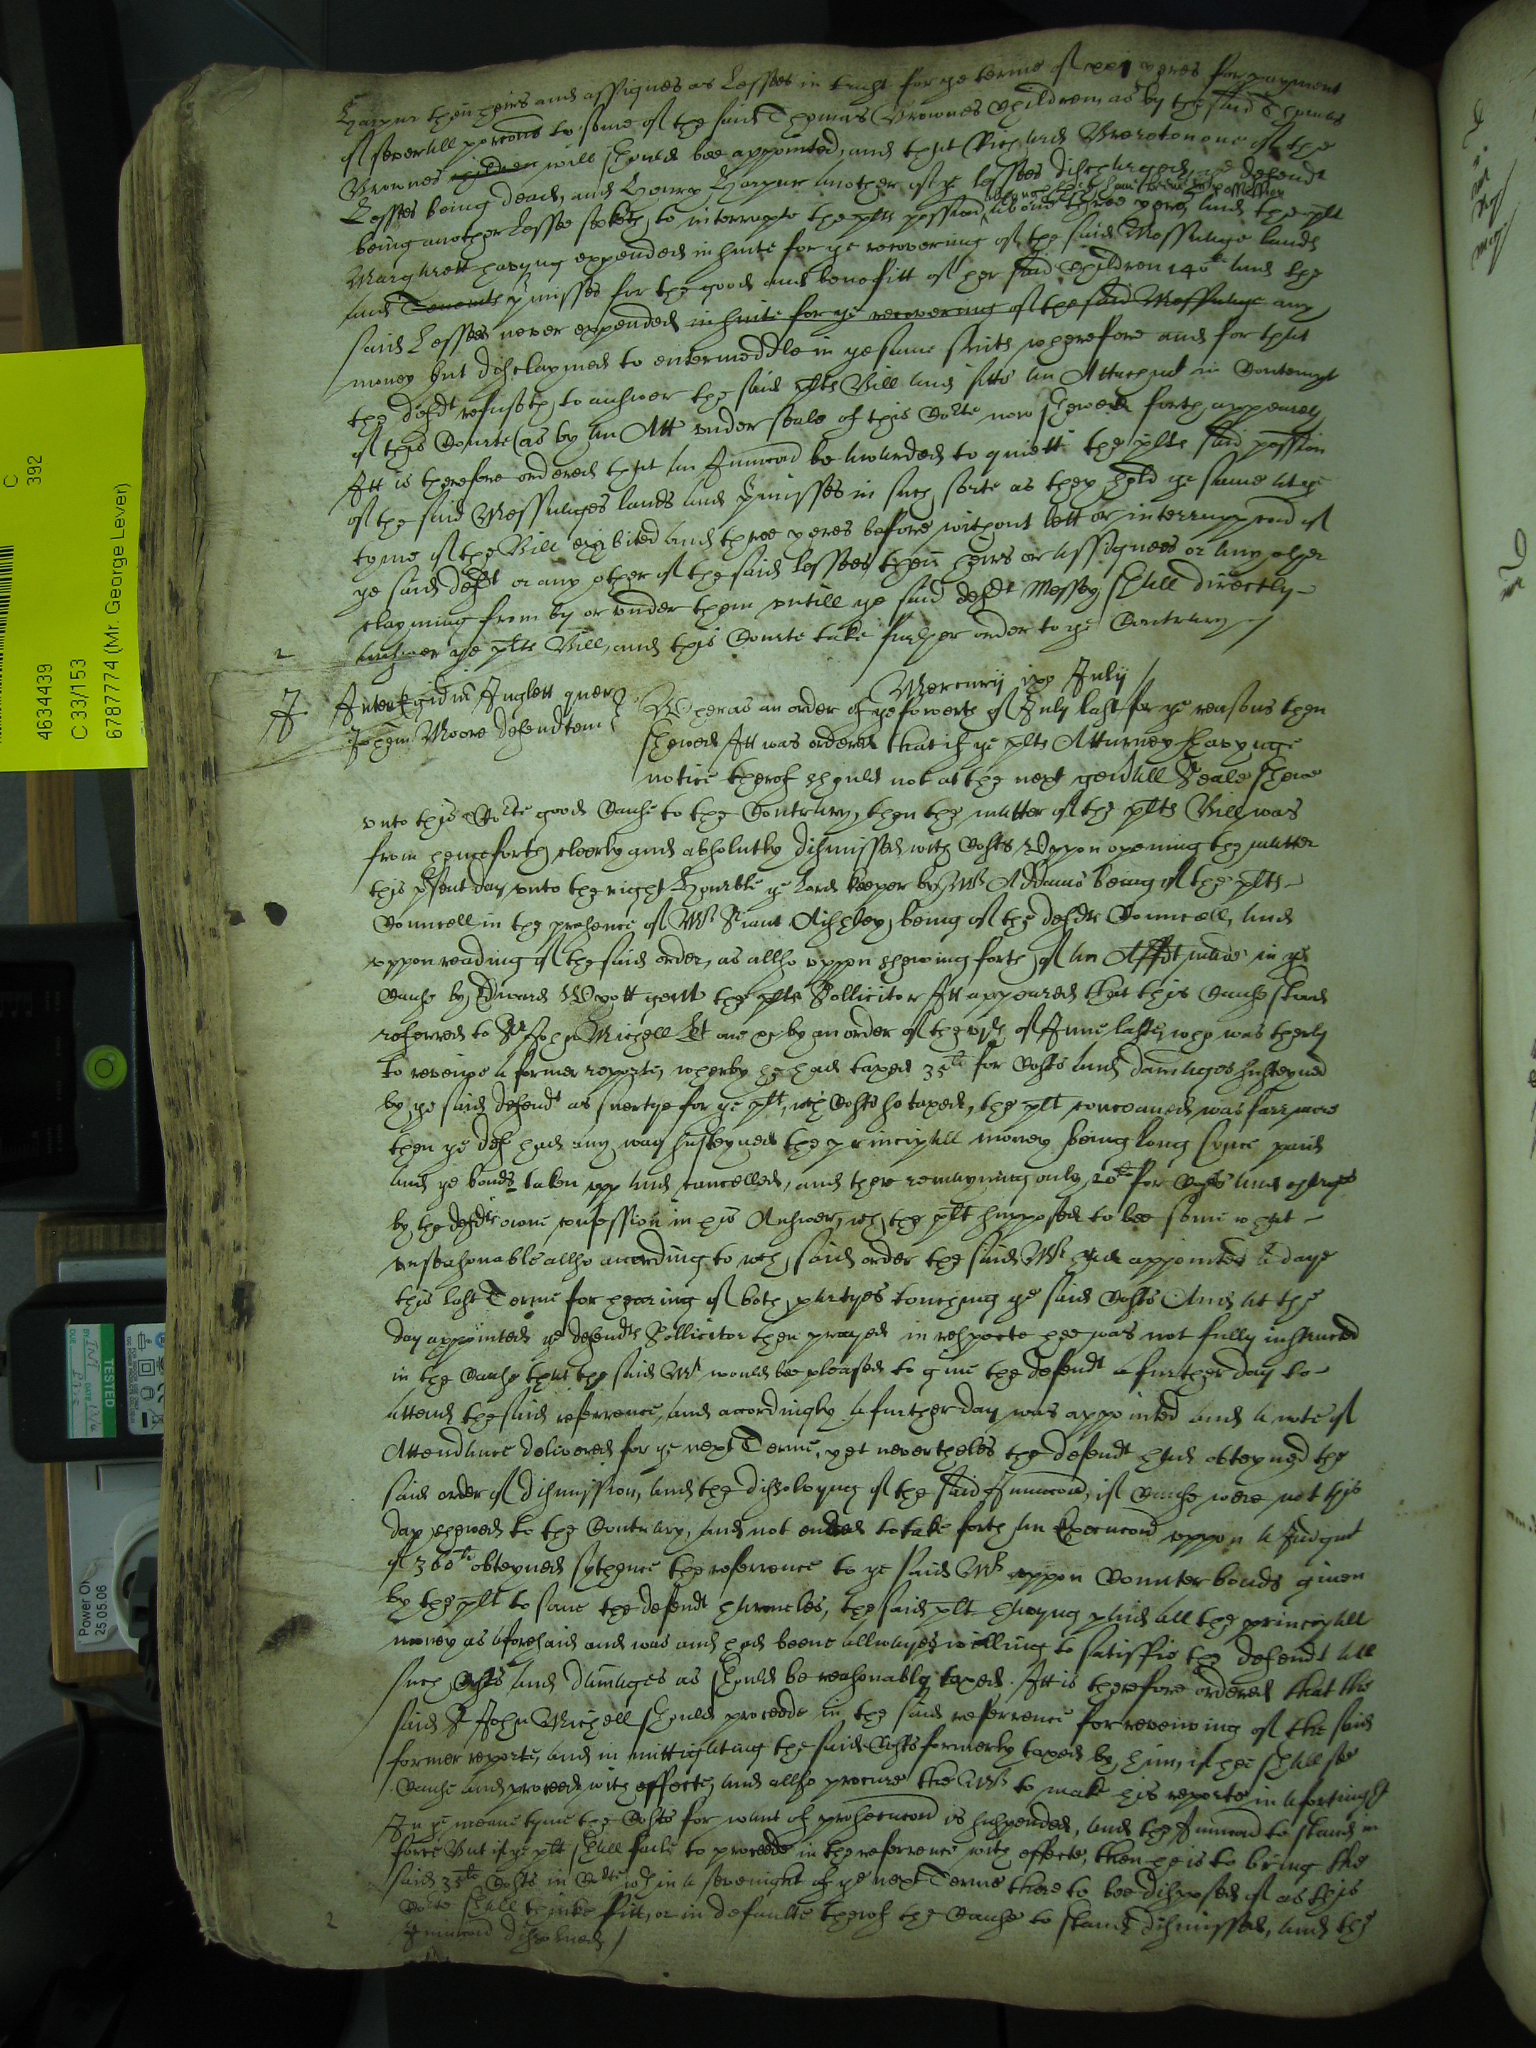 Harpur their heirs and assignes as Lessees in trust for ye terme of xxi yeres for payment
of severall porcons to some of the said Thomas Brownes Children as by the said Thomas
Brownes children will should bee appointed, and that Richard Brereton one of the
Lessees being dead, and Henry Harpur another of ye lessees discharged, ye defendt
being another Lessee seeketh to interrupte the plts possion, about three yeres, and the plt
Margarett havyng expended in suite for ye recovering of the said Messuage lands
and Tenemts pmisses for the good and benefitt of her said Children 140li and the
said Lessees never expended in suite for ye recovering of the said Messuage any
money but disclaymed to entermeddle in ye same suits wherefore and for that
the defdt refuseth to answer the said plts Bill and sitts an Attachmt in Contempt
of this Courte (as by an Att under seale of this Corte now shewed forth appeareth
Itt is therefore ordered that an Iniuncon be awarded to quiett the plts said possion
of the said Messuages lands and pmisses in such sorte as they held ye same at ye
tyme of the Bill exhibited and three yeres before without lett or interrupcon of
ye said defdt or any other of the said lessees their heirs or assignees or any other
clayming from by or under them untill ye said defdt Massey shall directly
answer ye plts Bill, and this Courte take further order to ye Contrary
2
Mercurij ixo July
J
Inter Egidiu Inglett quer
Johem Moore defendtem
Wheras an order of ye fowerth of July last for ye reasons then
shewed Itt was ordered that if ye plts Atturney havynge
notice therof should not at the next genrall Seale shew
unto this Corte good Cause to the Contrary, then the matter of the plts Bill was
from henceforth cleerly and absolutly dismissed with Costs Uppon opening the matter
this psent day unto the right Honrble ye Lord Keeper by Mr Addams being of the plts
Councell in the presence of Mr Sriant Aishley being of the defdts Councell, and
uppon reading of the said order, as allso uppon shewing forth of an Affdt made in ye
Cause by Edward Wyott gent the plts Sollicitor Itt appeared that this Cause stand
referred to Sr John Michell Kt one &c by an order of the of June last who was therby
to reveiwe a former reporte, wherby he had taxed 35li for Costs and damages susteyned
by ye said defendt as suertye for ye plt, wch Costs so taxed, the plt conceaved was farr more
then ye def had any way susteyned the principall money being long synce paid
and ye bonds taken upp and cancelled, and there remayning only 20li for Costs and charges
by the defdts owne confession in his Answer, wch the plt supposed to bee some what
unseasonable allso according to wch said order the said Mr had appointed a daye
this last Terme for hearing of both partyes touching ye said Costs And at the
day appointed ye defendts Sollicitor then prayed in respecte hee was not fully instructed
in the Cause that the said Mr would be pleased to give the defendt a further day to
attend the said referrence, and accordingly a further day was appointed and a note of
Attendance delivered for ye next Terme, yet nevertheles the defendt had obteyned the
said order of dismission, and the dissolvyng of the said Iniuncon, if Cause were not this
day shewed to the Contrary, and not ended to take forth an Execucon uppon a Judgmt
of 360li obteyned sythence the referrence to ye said Mr uppon Counter bonds given
by the plt to save the defendt harmeles, the said plt havyng paid all the principall
money as aforesaid and was and had beene allwayes willing to satisfie the defendt all
such Costs and damages as should be reasonably taxed. Itt is therefore ordered that the
said Sr John Michell should proceede in the said referrence for reveiwing of the said
former reporte, and in mittigating the said Costs formerly taxed by him, if hee shall see
Cause and proceed with effecte, and allso procure the Mr to make his reporte in a fortnight
In ye meane tyme the Costs for want of prosecucon is suspended, and the Iniuncon to stand in
force But if ye plt shall faile to proceede in the referrence with effecte, then he is to bring the
said 35li Costs in Corte wthin a sevenight of ye next Terme there to bee disposed of as this
Corte shall thinke fitt, or in defaulte therof the Cause to stand dismissed, and the
Iniuncon dissolved
2
C
392
4634439
C 33/153
6787774 (Mr. George Lever)
TESTED
Power On
25 05 06